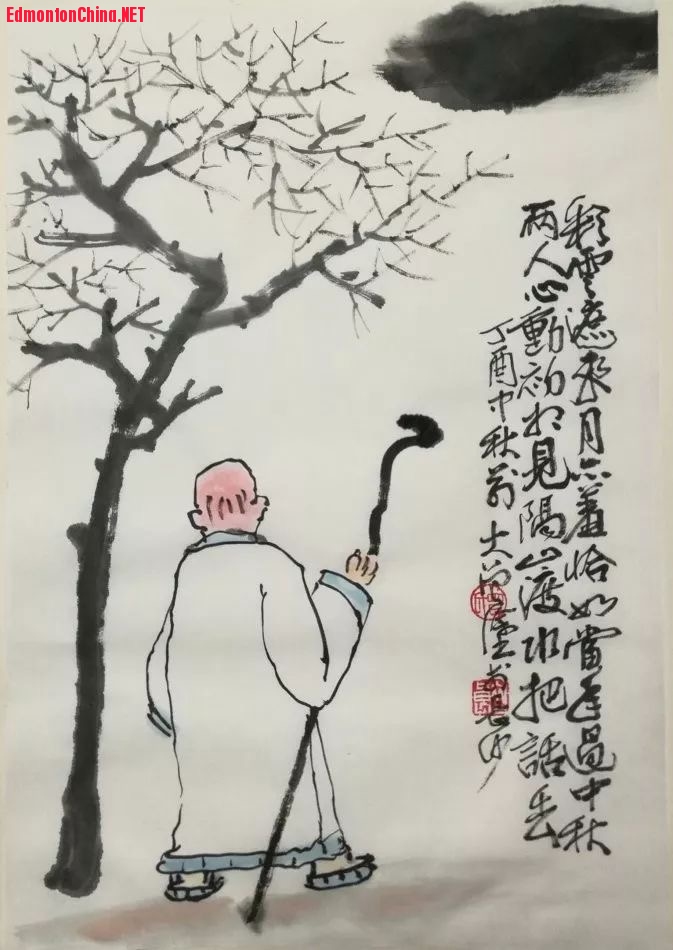 EdmontonChina.NET
彩雲遮來月亦羞恰如當年過中秋
两人心動初相見隔山渡水把話丢
丁酉中秋前大堂於長沙